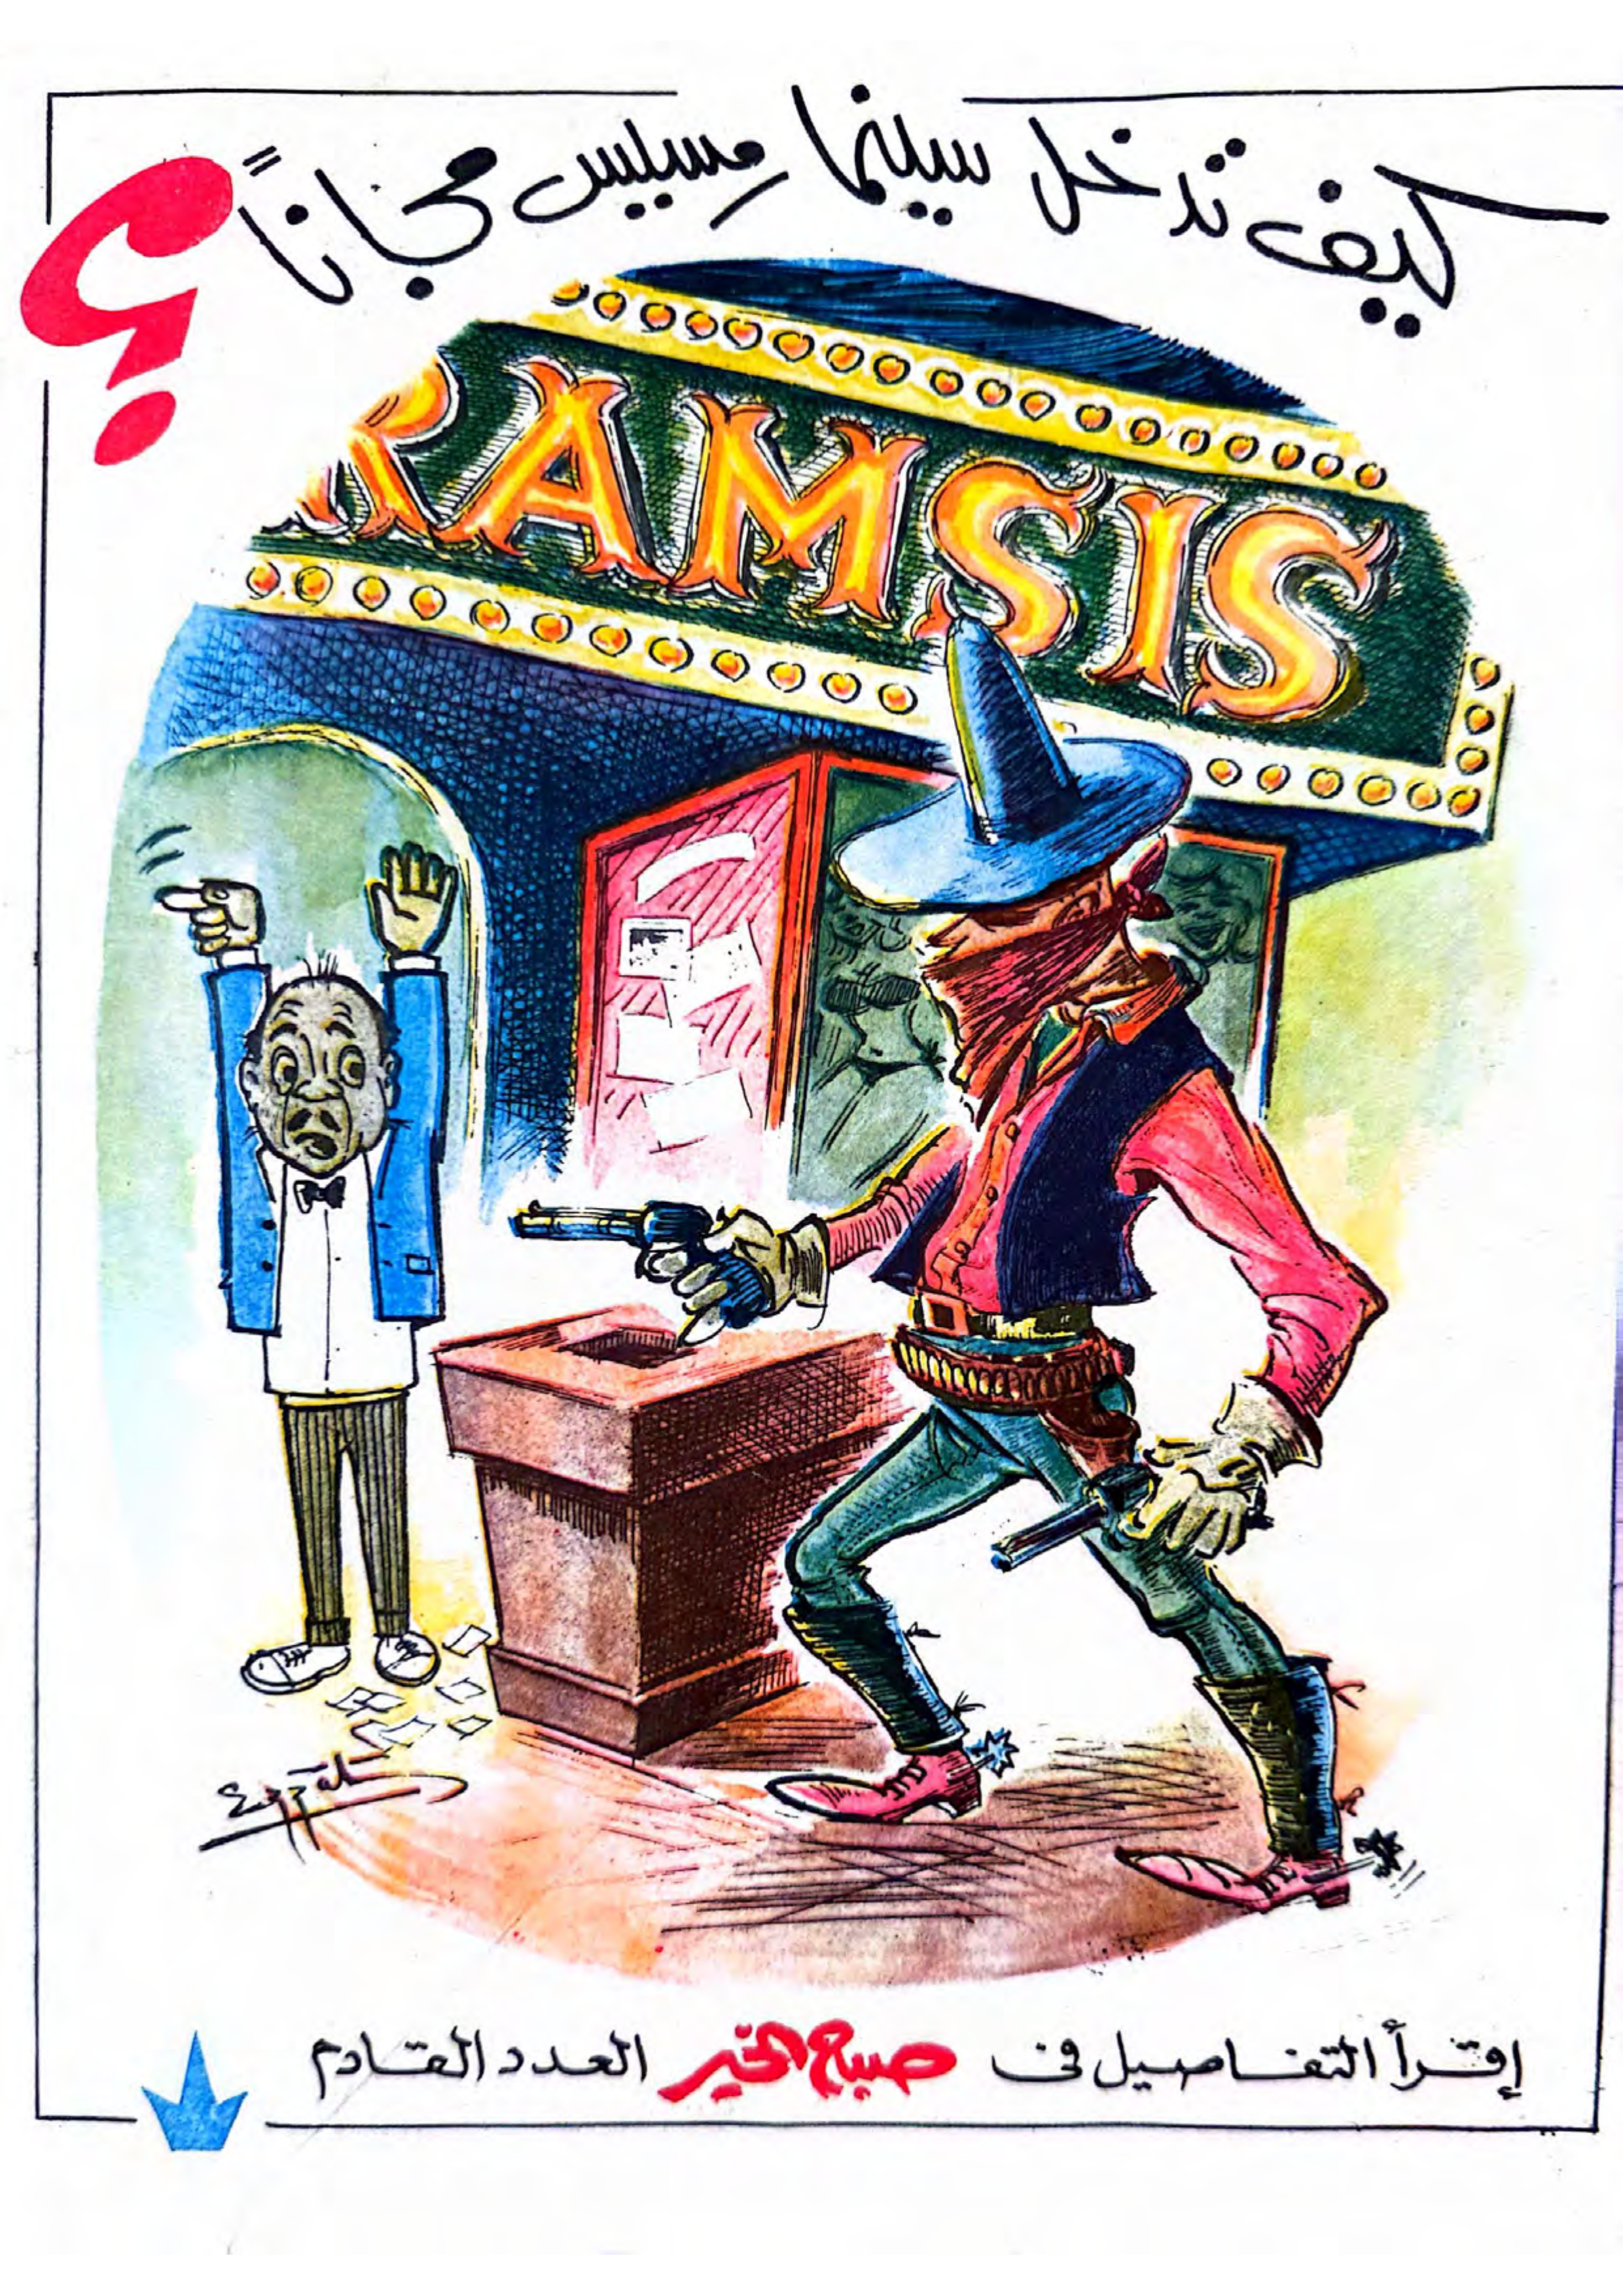 كيف تدخل سينما رمسيس مجاناً ؟
RAMSIS
إقرأ التفاصيل فى صباح الخير العدد القادم